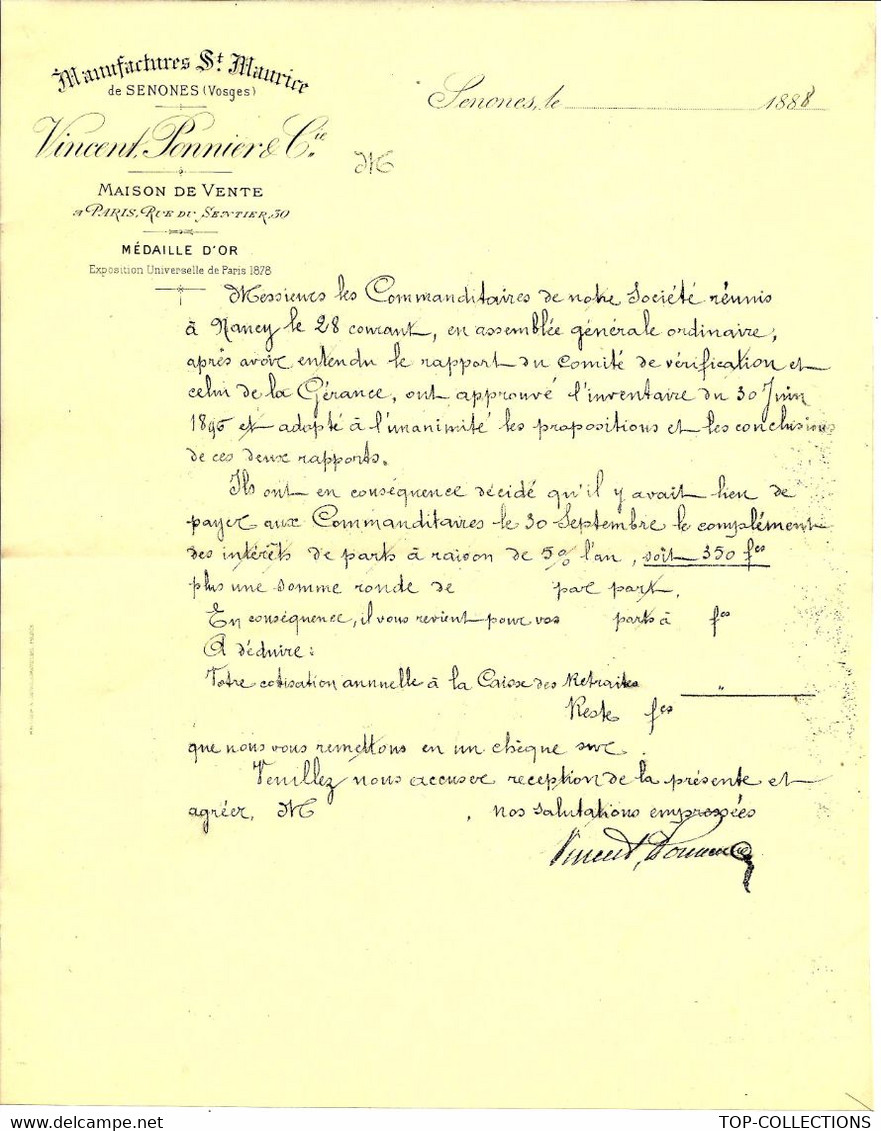 Manufactures St Maurice
de SENONES (Vosges)
Vincent, Ponnier & Cie
MAISON DE VENTE
A PARIS, RUE DU SENTIER, 30
MÉDAILLE D'OR
Exposition Universelle de Paris 1878
Senones, le 1888
M
Messieurs les Commanditaires de notre Société réunis
à Nancy le 28 courant, en assemblée générale ordinaire,
après avoir entendu le rapport du Comité de vérification et
celui de la Gérance, ont approuvé l'inventaire du 30 Juin
et adopté à l'unanimité les propositions et les conclusions
de ces deux rapports.
Ils ont en conséquence décidé qu'il y avait lieu de
payer aux Commanditaires le 30 Septembre le complément
des intérêts de parts à raison de 5% l'an, soit 350 fcs
plus une somme ronde de par part.
En conséquence, il vous revient pour vos parts à fcs
A déduire :
Votre cotisation annuelle à la Caisse des Retraites "
Reste fcs
que nous vous remettons en un chèque sur .
Veuillez nous accuser reception de la présente et
agréer, M , nos salutations empressées
Vincent, Ponnier & Cie
TOP-COLLECTIONS